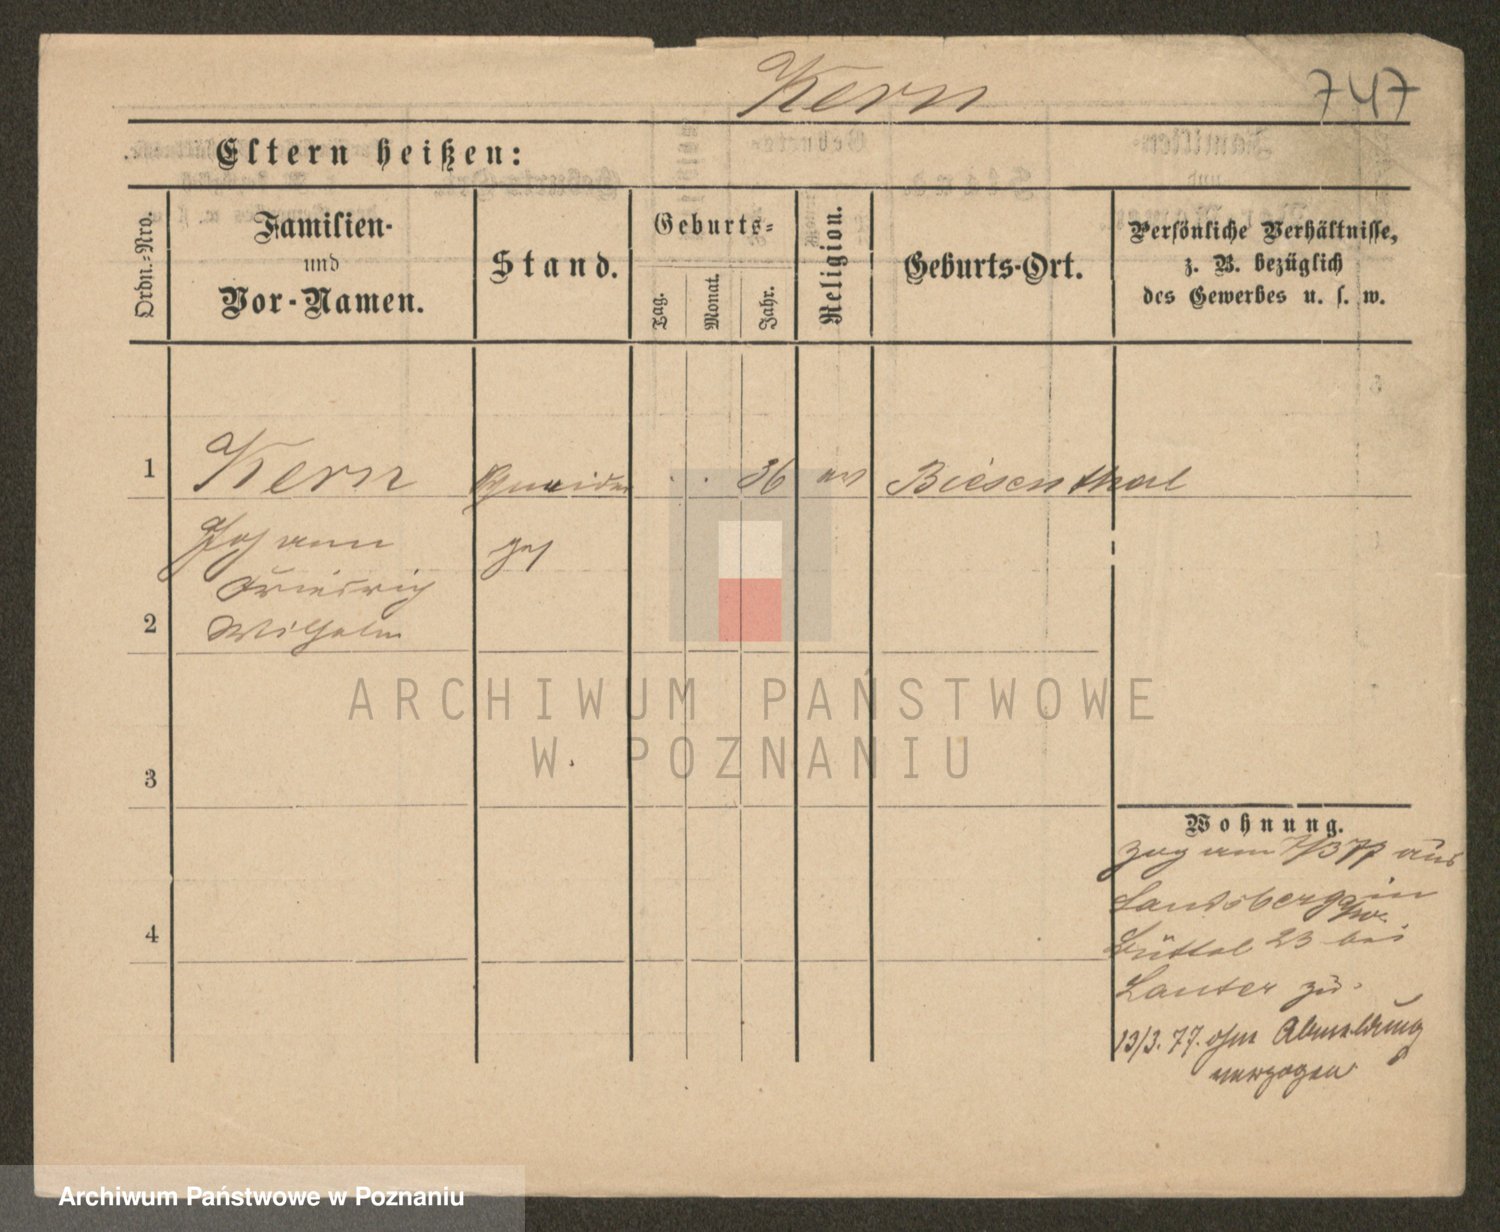 Kern 747
Eltern heißen:
Ordn.-Nro.
Familien-
und
Vor-Namen.
Stand.
Geburts-
Tag.
Monat.
Jahr.
Religion.
Geburts-Ort.
Persönliche Verhältnisse,
z. B. bezüglich
des Gewerbes u. s. w.
1 Kern 36 ev Biesenthal
Johann
Friedrich
2 Wilhelm
3
4
Wohnung.
zog am 7/3 77 aus
Landsberg in
Büttel 23 bei
Lanter zu.
13/3. 77. ohne Abmeldung
verzogen
ARCHIWUM PAŃSTWOWE
W POZNANIU
Archiwum Państwowe w Poznaniu